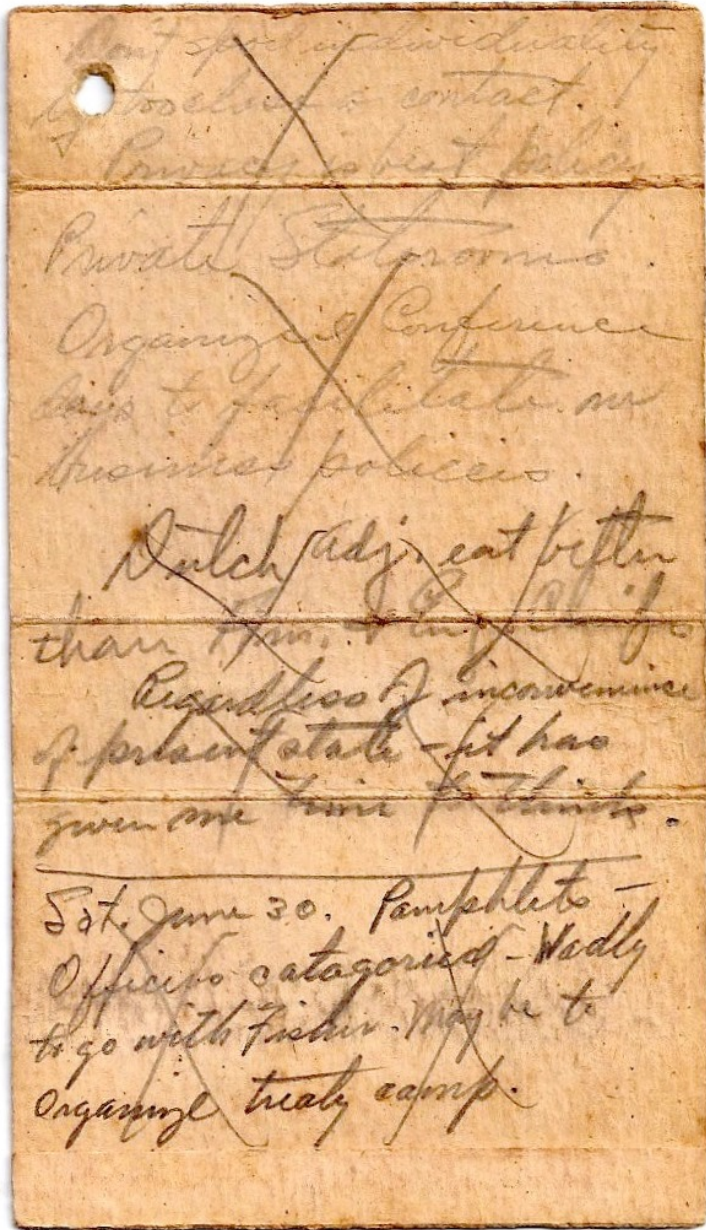 Don't spoil individuality
by too close a contact.
Privacy is best policy
Private Staterooms.
Organize Conference
to facilitate
business policies.
Dutch Adj. eat better
than Am. &
Regardless of inconvenience
of present state - it has
given me time to think.
Sat. June 30. Pamphlets -
Officers catagoried - Wadly
to go with Fisher. May be to
organize treaty camp.